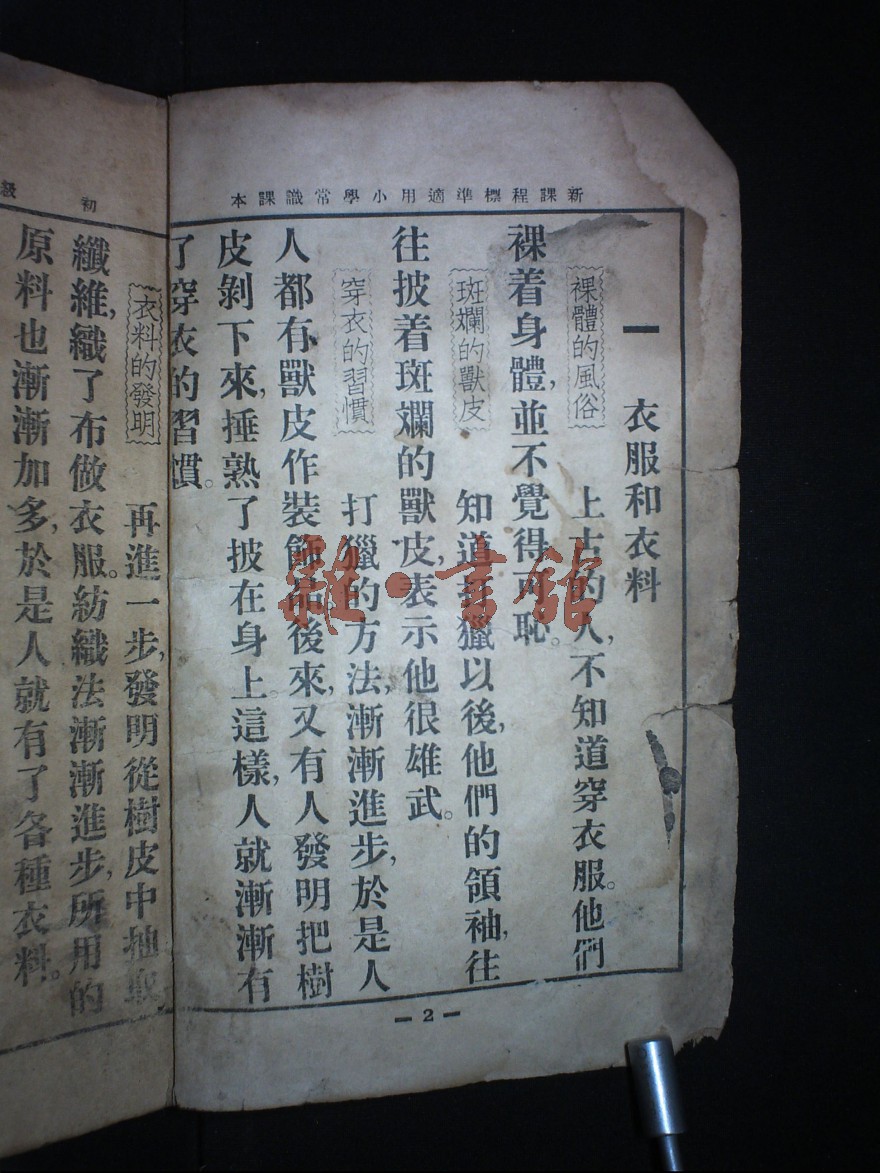 新課程標準適用小學常識課本
一 衣服和衣料
裸體的風俗
上古的人，不知道穿衣服。他們
裸着身體，並不覺得可恥。
斑斕的獸皮
知道打獵以後，他們的領袖，往
往披着斑斕的獸皮，表示他很雄武。
穿衣的習慣
打獵的方法，漸漸進步，於是人
人都有獸皮作裝飾品。後來，又有人發明把樹
皮剝下來，捶熟了披在身上。這樣，人就漸漸有
了穿衣的習慣。
— 2 —
初 級
衣料的發明
再進一步，發明從樹皮中抽取
纖維，織了布做衣服。紡織法漸漸進步，所用的
原料也漸漸加多，於是人就有了各種衣料。
雜·書館